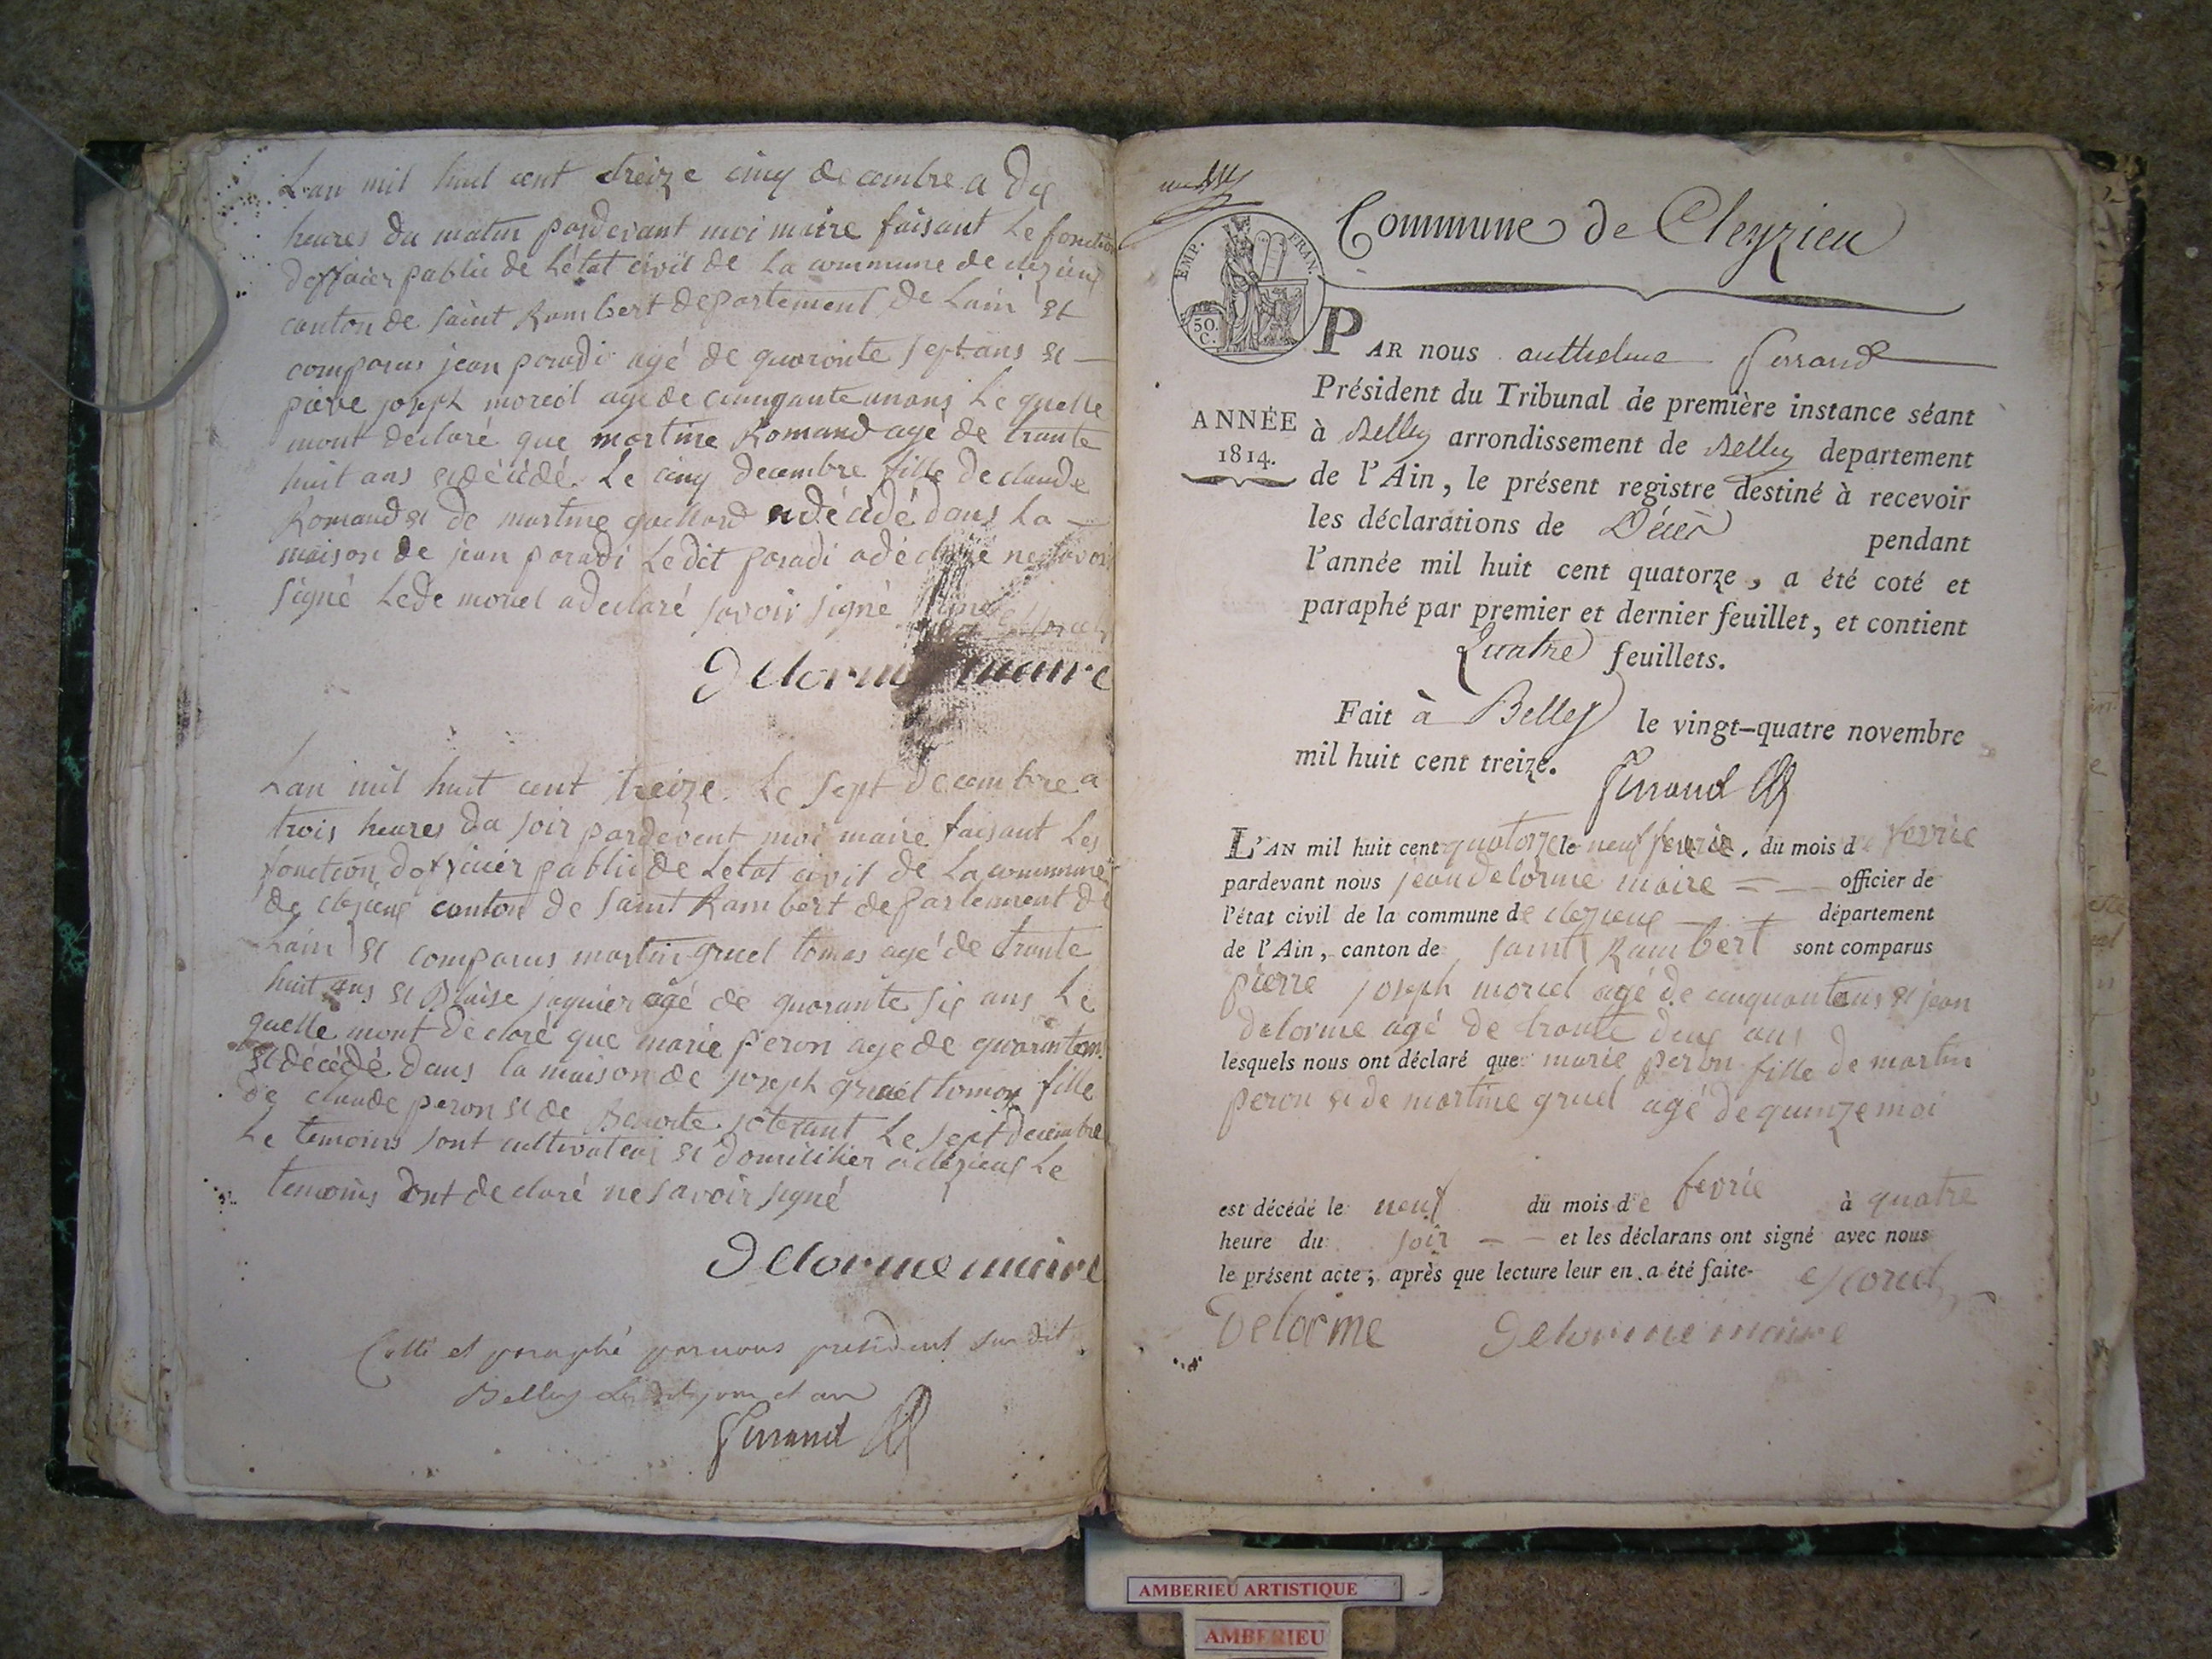 Lan mil huit cent treize cinq decembre a dix
heures du matin pardevant moi maire faisant le fonction
dofficier public de letat civil de la commune de clezieux
canton de saint Rambert departement de Lain et
comparus jean paradi agé de quaronte sept ans et
piere joseph morcel age de cinnquante unans le quelle
mont declaré que martine Romand agé de trante
huit ans et décédé. Le cinq decembre fille de claude
Romand et de martine gaillard décédé dans la
maison de jean paradi Ledit paradi adéclaré ne savoir
signé Lede morcel adeclaré savoir signé
Delorme maire
Lan mil huit cent treize Le sept decembre a
trois heures da soir pardevent moi maire faisant les
fonction dofficier public de Letat civil de La commune
de clezieux canton de saint Rambert departement de
Lain et comparus martin gruel tomas agé de trante
huit ans et Blaise jaquier agé de quarante six ans le
quelle mont declaré que marie peron age de
et décédé dans la maison de joseph gruel fille
de claude peron et de Benoite Le sept decembre
Le temoins sont cultivateur et domicilier a clezieux Le
temoins ont declaré ne savoir signé
Delorme maire
Cotté et paraphé par nous president susdit
Belley Les dits jour et an
Ferrand
Commune de Cleyzieu
EMP. FRAN.
50.
C.
PAR nous anthelme Ferrand
Président du Tribunal de première instance séant
ANNÉE
1814.
à Belley arrondissement de Belley departement
de l'Ain, le présent registre destiné à recevoir
les déclarations de Décès pendant
l'année mil huit cent quatorze, a été coté et
paraphé par premier et dernier feuillet, et contient
Quatre feuillets.
Fait à Belley le vingt-quatre novembre
mil huit cent treize.
Ferrand
L'AN mil huit cent quatorze le neuf fevrie, du mois de fevrie
pardevant nous jean delorme maire officier de
l'état civil de la commune de clezieux département
de l'Ain, canton de saint Rambert sont comparus
pierre joseph morcel agé de cinquantans et jean
delorme agé de trante deux ans
lesquels nous ont déclaré que marie peron fille de martin
peron et de martine gruel agé de quinze moi
est décédé le neuf du mois de fevrie à quatre
heure du soir et les déclarans ont signé avec nous
le présent acte; après que lecture leur en a été faite. Morcel
Delorme Delorme maire
AMBERIEU ARTISTIQUE
AMBERIEU